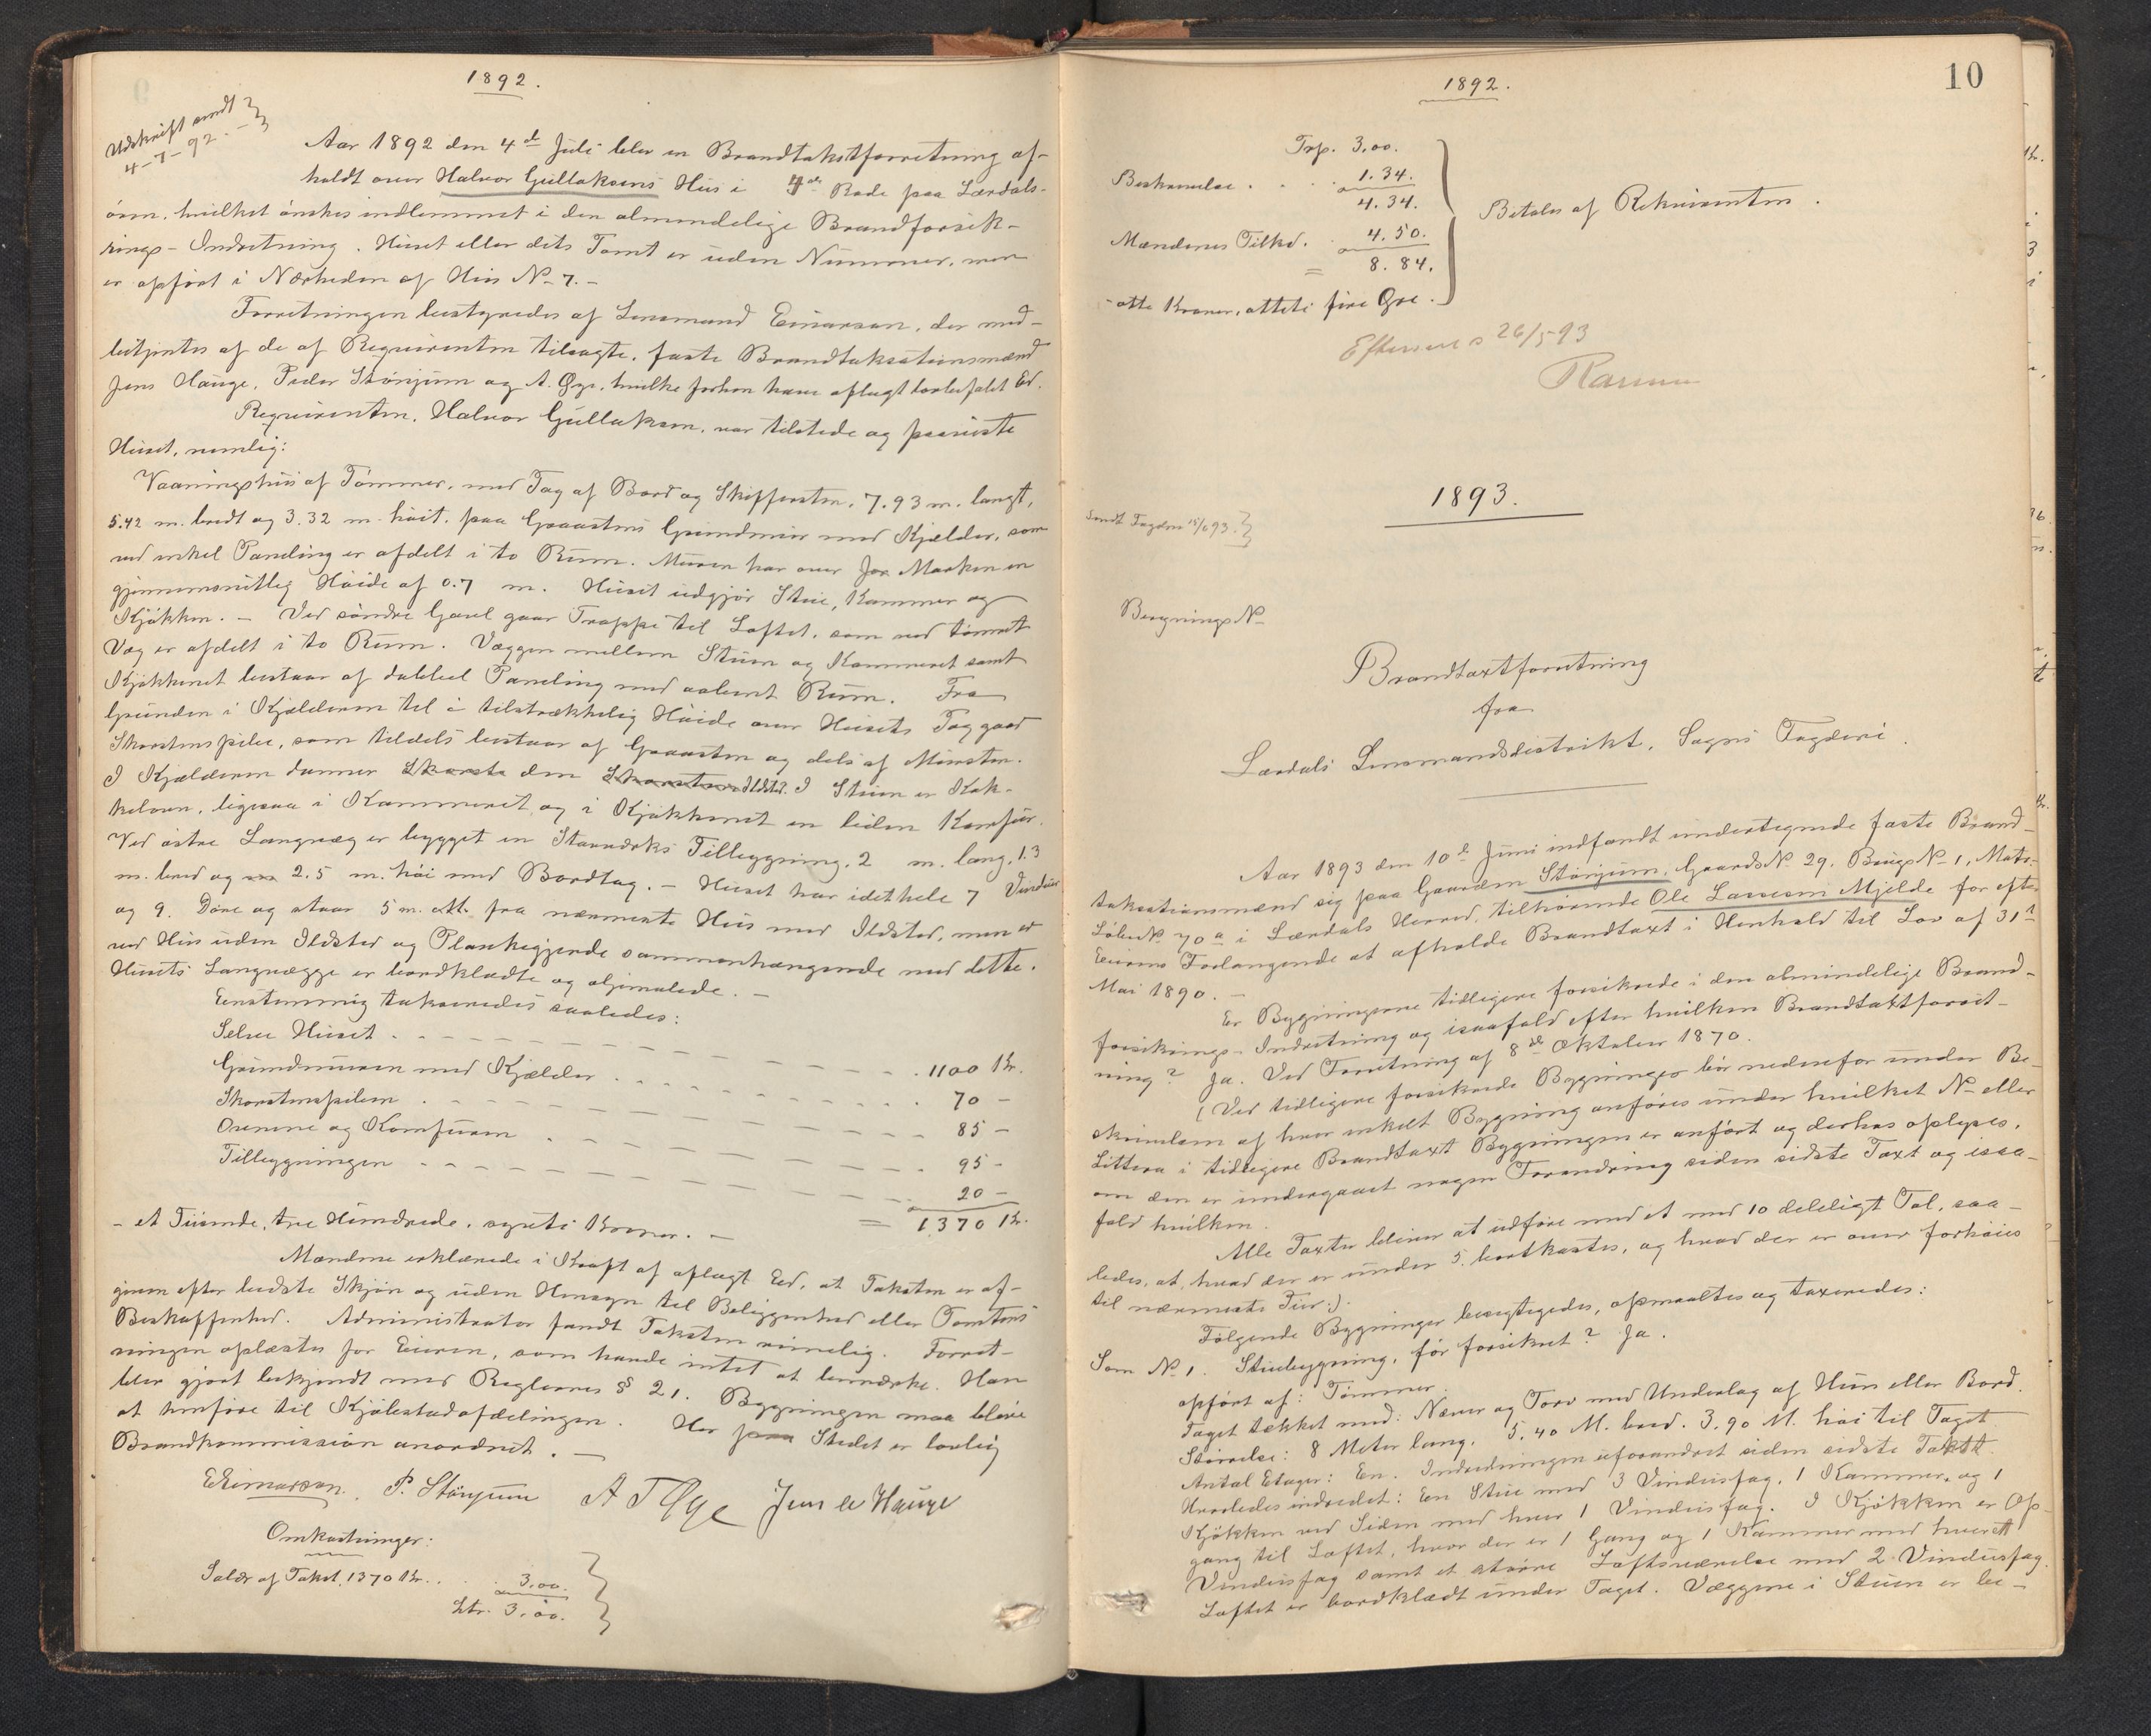 1892.
Udskrift sendt
4-7-92.-
Aar 1892 den 4de Juli blev en Brandtakstforretning af-
holdt over Halvor Gullaksens Hus i 4de Rode paa Lærdals-
øren, hvilket ønskes indlemmet i den almindelige Brandforsik-
rings-Indretning. Huset eller dets Tomt er uden Nummer, men
er opført i Nærheden af Hus No 7.-
Forretningen bestyredes af Lensmand Einarsen, der med-
betjentes af de af Requirenten tilsagte, faste Brandtaksationsmænd
Jens Hauge, Peder Stönjum og A. Øye, hvilke forhen have aflagt lovbefalet Ed.
Requirenten, Halvor Gullaksen, var tilstede og paaviste
Huset, nemlig:
Vaaningshus af Tømmer, med Tag af Bord og Skifersten, 7.93 m. langt,
5.42 m. bredt og 3.32 m. høit, paa Graastens Grundmur med Kjelder, som
ved enkel Paneling er afdelt i to Rum. Muren har over Jor Marken en
gjennemsnitlig Høide af 0.7 m. Huset udgjør Stue, Kammer og
Kjøkken. - Ved søndre Gavl gaar Trappe til Loftet, som ved tømret
Væg er afdelt i to Rum. Væggen mellem Stuen og Kammeret samt
Kjøkkenet bestaar af dobbel Paneling med aabent Rum. Fra
Grunden i Kjelderen til i tilstrækkelig Høide over Husets Tag gaar
Skorstenspibe, som tildels bestaar af Graasten og dels af Mursten.
I Kjælderen danner Skorste den Skorsten Ildsted. I Stuen er Kak-
kelovn, ligesaa i Kammeret og i Kjøkkenet en liden Komfur.
Ved østre Langvæg er bygget en Stavverks Tilbygning, 2 m. lang, 1.3
m. bred og 2.5 m. høi med Bordtag. - Huset har idethele 7 Vinduer
og 9. Døre og staar 5 m. fra nærmeste Hus med Ildsted, men er
ved Hus uden Ildsted og Plankegjerde sammenhængende med dette.
Husets Langvægge er bordklædte og oljemalede. -
Eenstemmig takseredes saaledes:
Selve Huset . - - - 1100 Kr.
Grundmuren med Kjælder . - - - 70 -
Skorstenspiben . - - - 85 -
Ovnene og Komfuren . - - - 95 -
Tilbygningen - - - 20 -
- et Tusinde, tre Hundrede, sytti Kroner. - = 1370 Kr.
Mændene erklærede i Kraft af aflagt Eed, at Taksten er af-
given efter bedste Skjøn og uden Hensyn til Beliggenhed eller Tomtens
Beskaffenhed. Administrator fandt Taksten rimelig. Forret-
ningen oplæstes for Eieren, som havde intet at bemærke. Han
blev gjort bekjendt med Reglernes § 21. Bygningen maa blive
at henføre til Kjøbstadafdelingen. Her paa Stedet er lovlig
Brandkommission anordnet. -
E Einarsen. P. Stönjum A T Øye Jens O Hauge
Omkostninger:
Salær af Takst, 1370 Kr. . . 3,00.
Ltr. 3,00.
1892.
10
Trp. 3,00.
Beskrivelse . . . 1.34.
4.34.
Mændenes Tilkd. . 4.50.
= 8.84.
- otte Kroner, otteti fire Øre.
Betales af Rekvirenten.
Efterseet 26/5 93
1893.
Sendt Fogden 15/6 93.
Bygnings No
Brandtaxtforretning
fra
Lærdals Lensmandsdistrikt, Sogns Fogderi.
Aar 1893 den 10de Juni indfandt undertegnede faste Brand-
taksationsmænd sig paa Gaarden Stönjum, Gaards No 29. Brugs No 1, Matr.
Løbe No 70a i Lærdals Herred, tilhørende Ole Larsen Mjelde for efter
Eierens Forlangende at afholde Brandtaxt i Henhold til Lov af 31te
Mai 1890. -
Er Bygningerne tidligere forsikrede i den almindelige Brand-
forsikrings-Indretning og isaafald efter hvilken Brandtaktforret-
ning? Ja. Ved Forretning af 8de Oktober 1870.
(Ved tidligere forsikrede Bygninger bør nedenfor under Be-
skrivelsen af hver enkelt Bygning anføres under hvilket No eller
Littera i tidligere Brandtaxt Bygningen er anført og derhos oplyses,
om den er undergaaet nogen Forandring siden sidste Taxt og isaa-
fald hvilken.
Alle Taxter bliver at udføre med et med 10 deleligt Tal, saa-
ledes, at, hvad der er under 5, bortkastes, og hvad der er over forhøies
til nærmeste Tier:).
Følgende Bygninger besigtigedes, opmaaltes og taxeredes:
Som No 1. Stuebygning, før forsikret? Ja.
opført af: Tømmer.
Taget tækket med: Næver og Torv med Underlag af Hun eller Bord.
Størrelse: 8 Meter lang, 5,40 M. bred. 3,90 M. høi til Taget
Antal Etager: En. Indredningen uforandret siden sidste Takst.
Hvorledes indredet: En Stue med 3 Vindusfag, 1 Kammer, og 1
Kjøkken ved Siden med hver 1 Vindusfag. I Kjøkken er Op-
gang til Loftet, hvor der er 1 Gang og 1 Kammer med hver et
Vindusfag samt et større Loftsværelse med 2 Vindusfag.
Loftet er bordklædt under Taget. Væggene i Stuen er be-